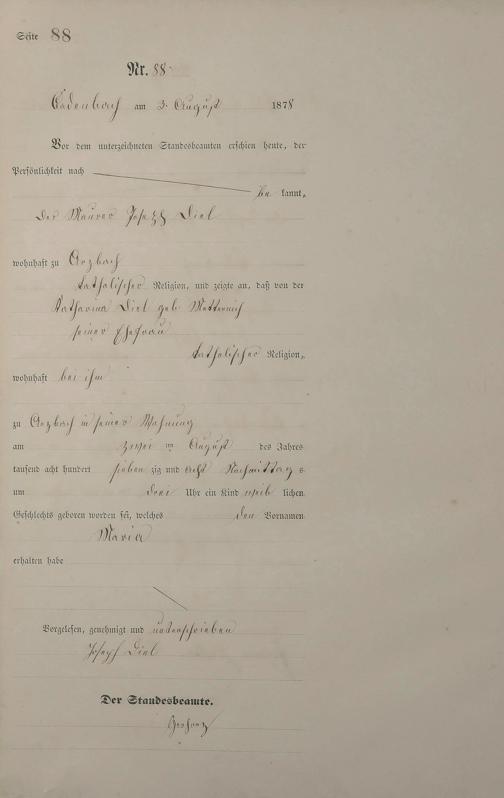 Seite 88
Nr. 88.
Cadenbach am 3. August 1878
Vor dem unterzeichneten Standesbeamten erschien heute, der
Persönlichkeit nach
be kannt,
Der Maurer Joseph Diel
wohnhaft zu Arzbach
katholischer Religion, und zeigte an, daß von der
Katharina Diel geb Metternich
seiner Ehefrau
katholischer Religion,
wohnhaft bei ihm
zu Arzbach in seiner Wohnung
am zwei ten August des Jahres
tausend acht hundert sieben zig und acht Nachmittag s
um drei Uhr ein Kind weib lichen
Geschlechts geboren worden sei, welches den Vornamen
Maria
erhalten habe
Vorgelesen, genehmigt und unterschrieben
Joseph Diel
Der Standesbeamte.